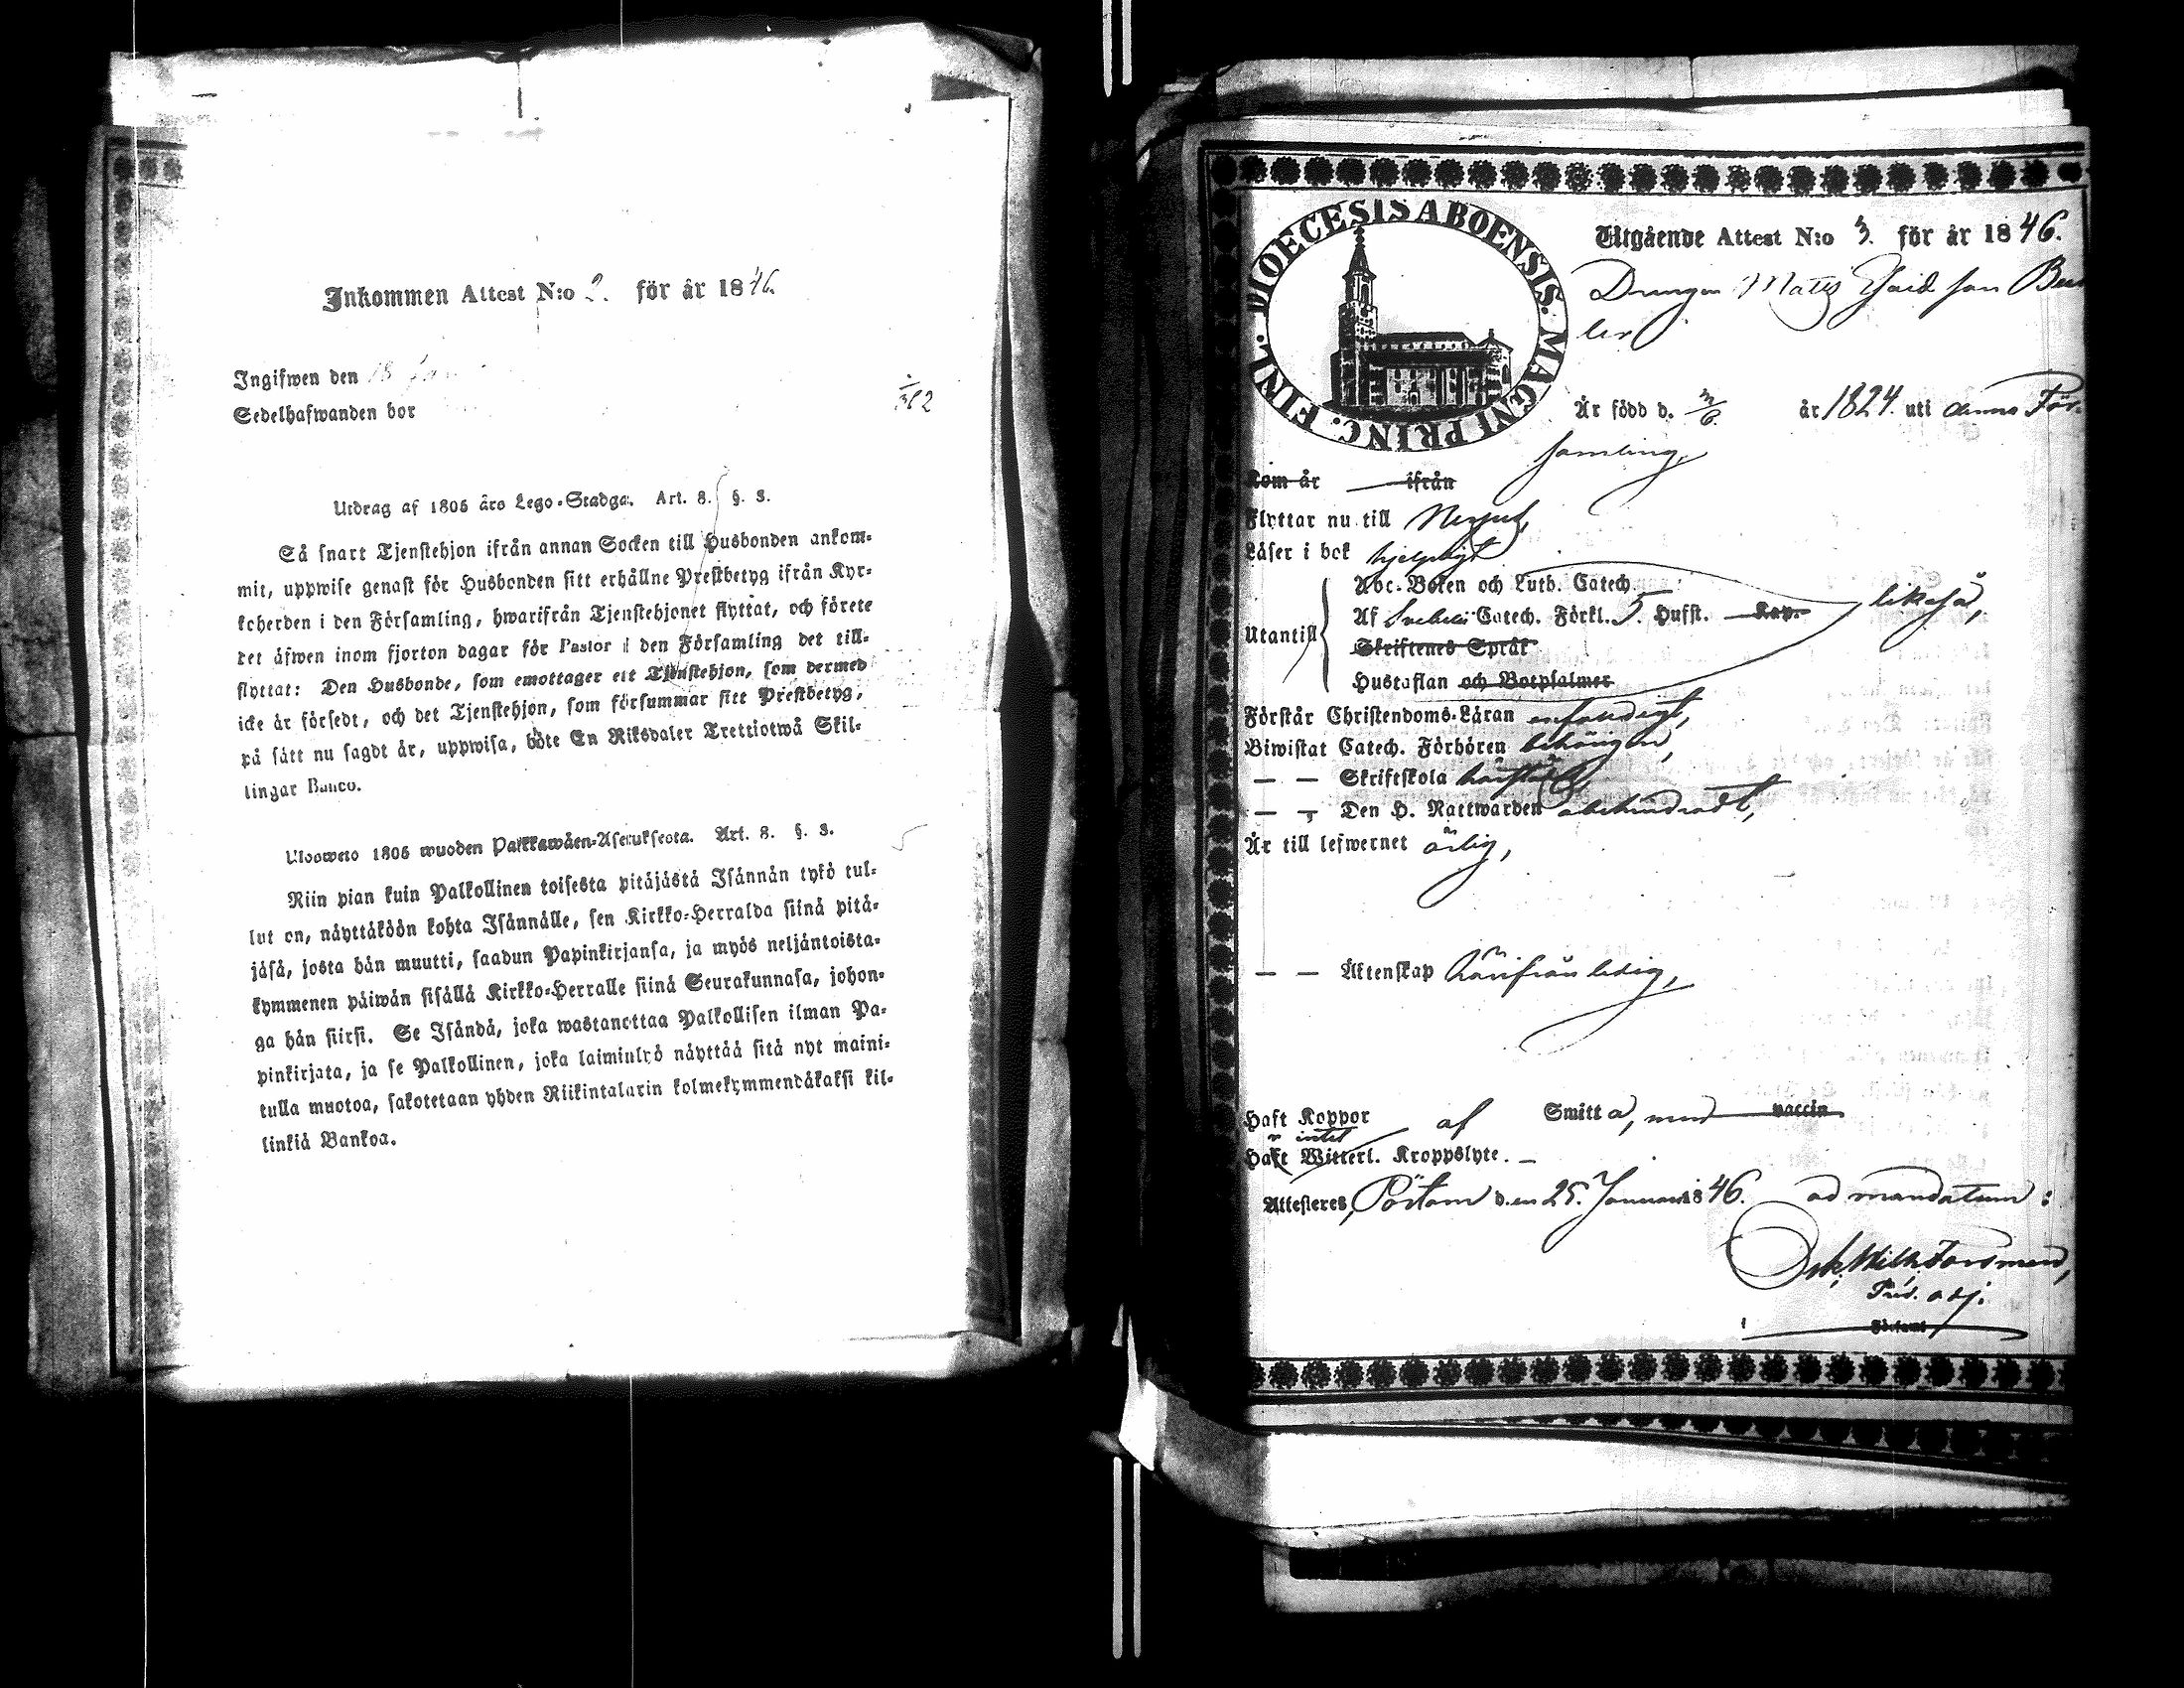 Inkommen Attest N:o 2. för år 1846.
Ingifwen den 18 Jan
Sedelhafwanden bor
Utdrag af 1805 års Lego-Stadga. Art. 8. §. 3.
Så snart Tjenstehjon ifrån annan Socken till Husbonden ankom-
mit, uppwise genast för Husbonden sitt erhållne Prestbetyg ifrån Kyr-
koherden i den Församling, hwarifrån Tjenstehjonet flyttat, och förete
det äfwen inom fjorton dagar för Pastor i den Församling det till-
flyttat: Den Husbonde, som emottager ett Tjenstehjon, som dermed
icke är försedt, och det Tjenstehjon, som försummar sitt Prestbetyg,
på sätt nu sagdt är, uppwisa, böte En Riksdaler Trettiotwå Skil-
lingar Banco.
Ulosweto 1805 wuoden Palkkawäen-Asetuksesta. Art. 8. §. 3.
Niin pian kuin Palkollinen toisesta pitäjästä Isännän tykö tul-
lut on, näyttäköön kohta Isännälle, sen Kirkko-Herralda siinä pitä-
jäsä, josta hän muutti, saadun Papinkirjansa, ja myös neljäntoista-
kymmenen päiwän sisällä Kirkko-Herralle siinä Seurakunnasa, johon-
ga hän siirsi. Se Isändä, joka wastanottaa Palkollisen ilman Pa-
pinkirjata, ja se Palkollinen, joka laiminlyö näyttää sitä nyt maini-
tulla muotoa, sakotetaan yhden Riikintalarin kolmekymmendäkaksi kil-
linkiä Bankoa.
DIOECESIS ABOENSIS. MAGNI PRINC. FINL.
Utgående Attest N:o 3. för år 1846.
Drängen Matts
Är född d. år 1824. uti denna För-
samling,
Kom år ifrån
Flyttar nu till
Läser i bok hjelpligt
Abc-Boken och Luth. Catech.
Utantill Af Svebelii Catech. Förkl. 5. Hufst. Kap. likaså,
Skriftenes Språk
Hustaflan och Botpsalmer
Förstår Christendoms-Läran enfaldigt,
Biwistat Catech. Förhören behörigen,
— — Skriftskola
— — Den H. Nattwarden obehindradt,
Är till lefwernet ärlig,
— — Äktenskap härifrån ledig,
Haft Koppor af Smitta, med vaccin
intet
Haft Witterl. Kroppslyte. —
Attesteres, Pörtom den 25. Januari 1846. ad mandatum:
Forsman,
adj.